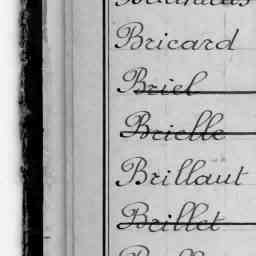 Bricard
Briel
Brielle
Brillaut
Brillet